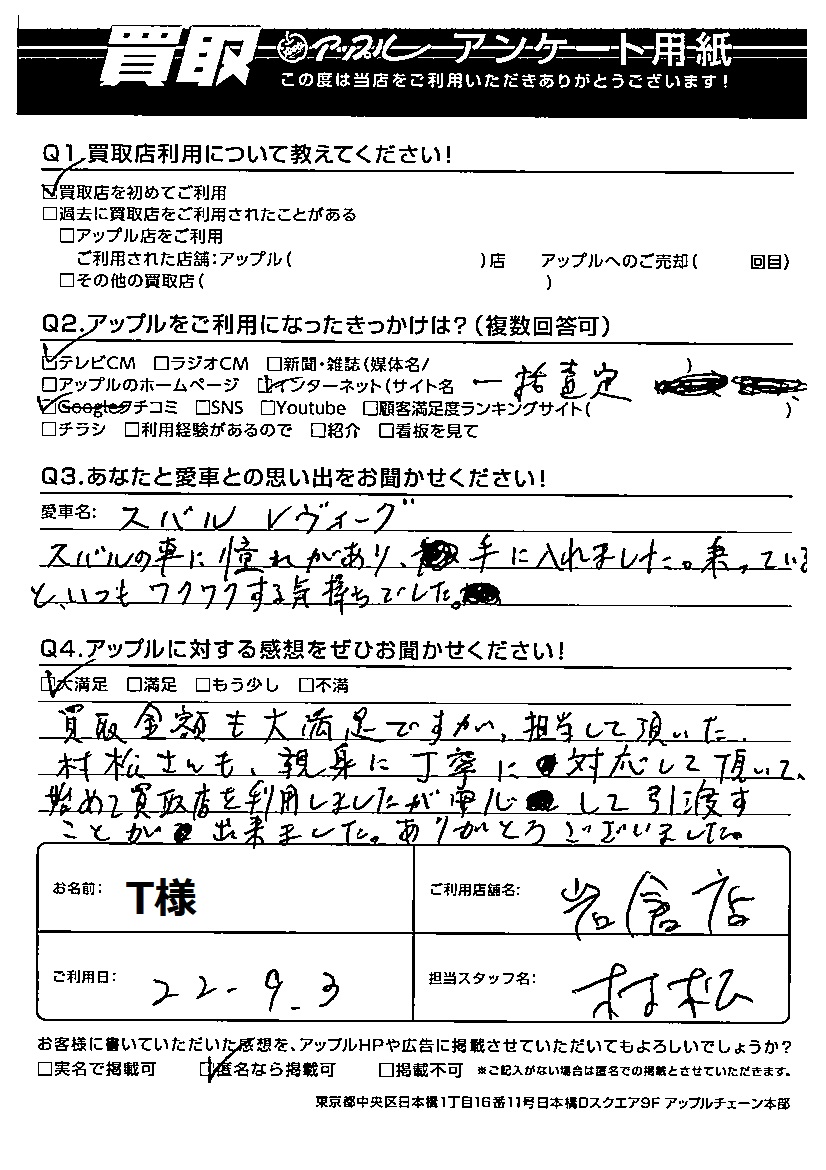 買取 アップル アンケート用紙
この度は当店をご利用いただきありがとうございます!
Q1.買取店利用について教えてください!
☑買取店を初めてご利用
□過去に買取店をご利用されたことがある
□アップル店をご利用
ご利用された店舗:アップル( )店 アップルへのご売却( 回目)
□その他の買取店( )
Q2.アップルをご利用になったきっかけは?(複数回答可)
☑テレビCM □ラジオCM □新聞・雑誌(媒体名/ )
□アップルのホームページ ☑インターネット(サイト名 一括査定
☑Googleクチコミ □SNS □Youtube □顧客満足度ランキングサイト( )
□チラシ □利用経験があるので □紹介 □看板を見て
Q3.あなたと愛車との思い出をお聞かせください!
愛車名: スバル レヴォーグ
スバルの車に憧れがあり、手に入れました。乗っている
と、いつもワクワクする気持ちでした。
Q4.アップルに対する感想をぜひお聞かせください!
☑大満足 □満足 □もう少し □不満
買取金額も大満足ですが、担当して頂いた
村松さんも、親身に丁寧に対応して頂いて、
始めて買取店を利用しましたが安心して引渡す
ことが出来ました。ありがとうございました。
お名前: T様 ご利用店舗名: 岩倉店
ご利用日: 22-9-3 担当スタッフ名: 村松
お客様に書いていただいた感想を、アップルHPや広告に掲載させていただいてもよろしいでしょうか?
□実名で掲載可 ☑匿名なら掲載可 □掲載不可 ※ご記入がない場合は匿名での掲載とさせていただきます。
東京都中央区日本橋1丁目16番11号日本橋Dスクエア9F アップルチェーン本部